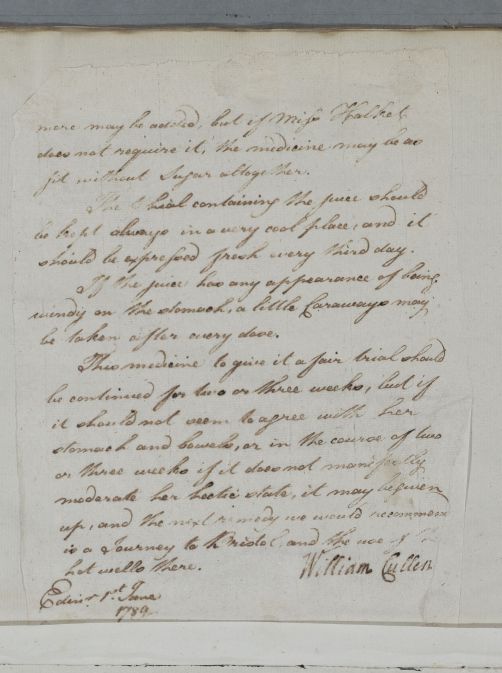 more may be added, but if Miss Halket
does not require it, the medicine may be as
fit without Sugar altogether.
The Phial containing the juice should
be kept always in a very cool place, and it
should be expressed fresh every third day.
If the juice has any appearance of being
windy on the stomach, a little Caraways may
be taken after every dose.
This medicine to give it a fair trial should
be continued for two or three weeks, but if
it should not seem to agree with her
stomach and bowels, or in the course of two
or three weeks if it does not manifestly
moderate her hectic state, it may be given
up, and the next remedy we would recommend
is a Journey to Bristol, and the use of the
hot wells there.
William Cullen
Edinr. 1st. June
1789